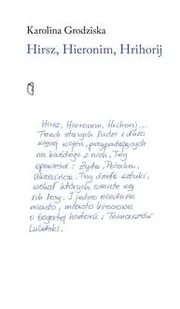 Karolina Grodziska
Hirsz, Hieronim, Hrihorij
Hirsz, Hieronim, Hrihorij...
Trzech starych ludzi i dużo
więcej wojen, przypadających
na każdego z nich. Trzy
opowieści: Żyda, Polaka,
Ukraińca. Trzy dzieła sztuki,
wokół których osnute są
ich losy. I jedno nieduże
miasto, miasto kresowe
o bogatej historii: Tomaszów
Lubelski.